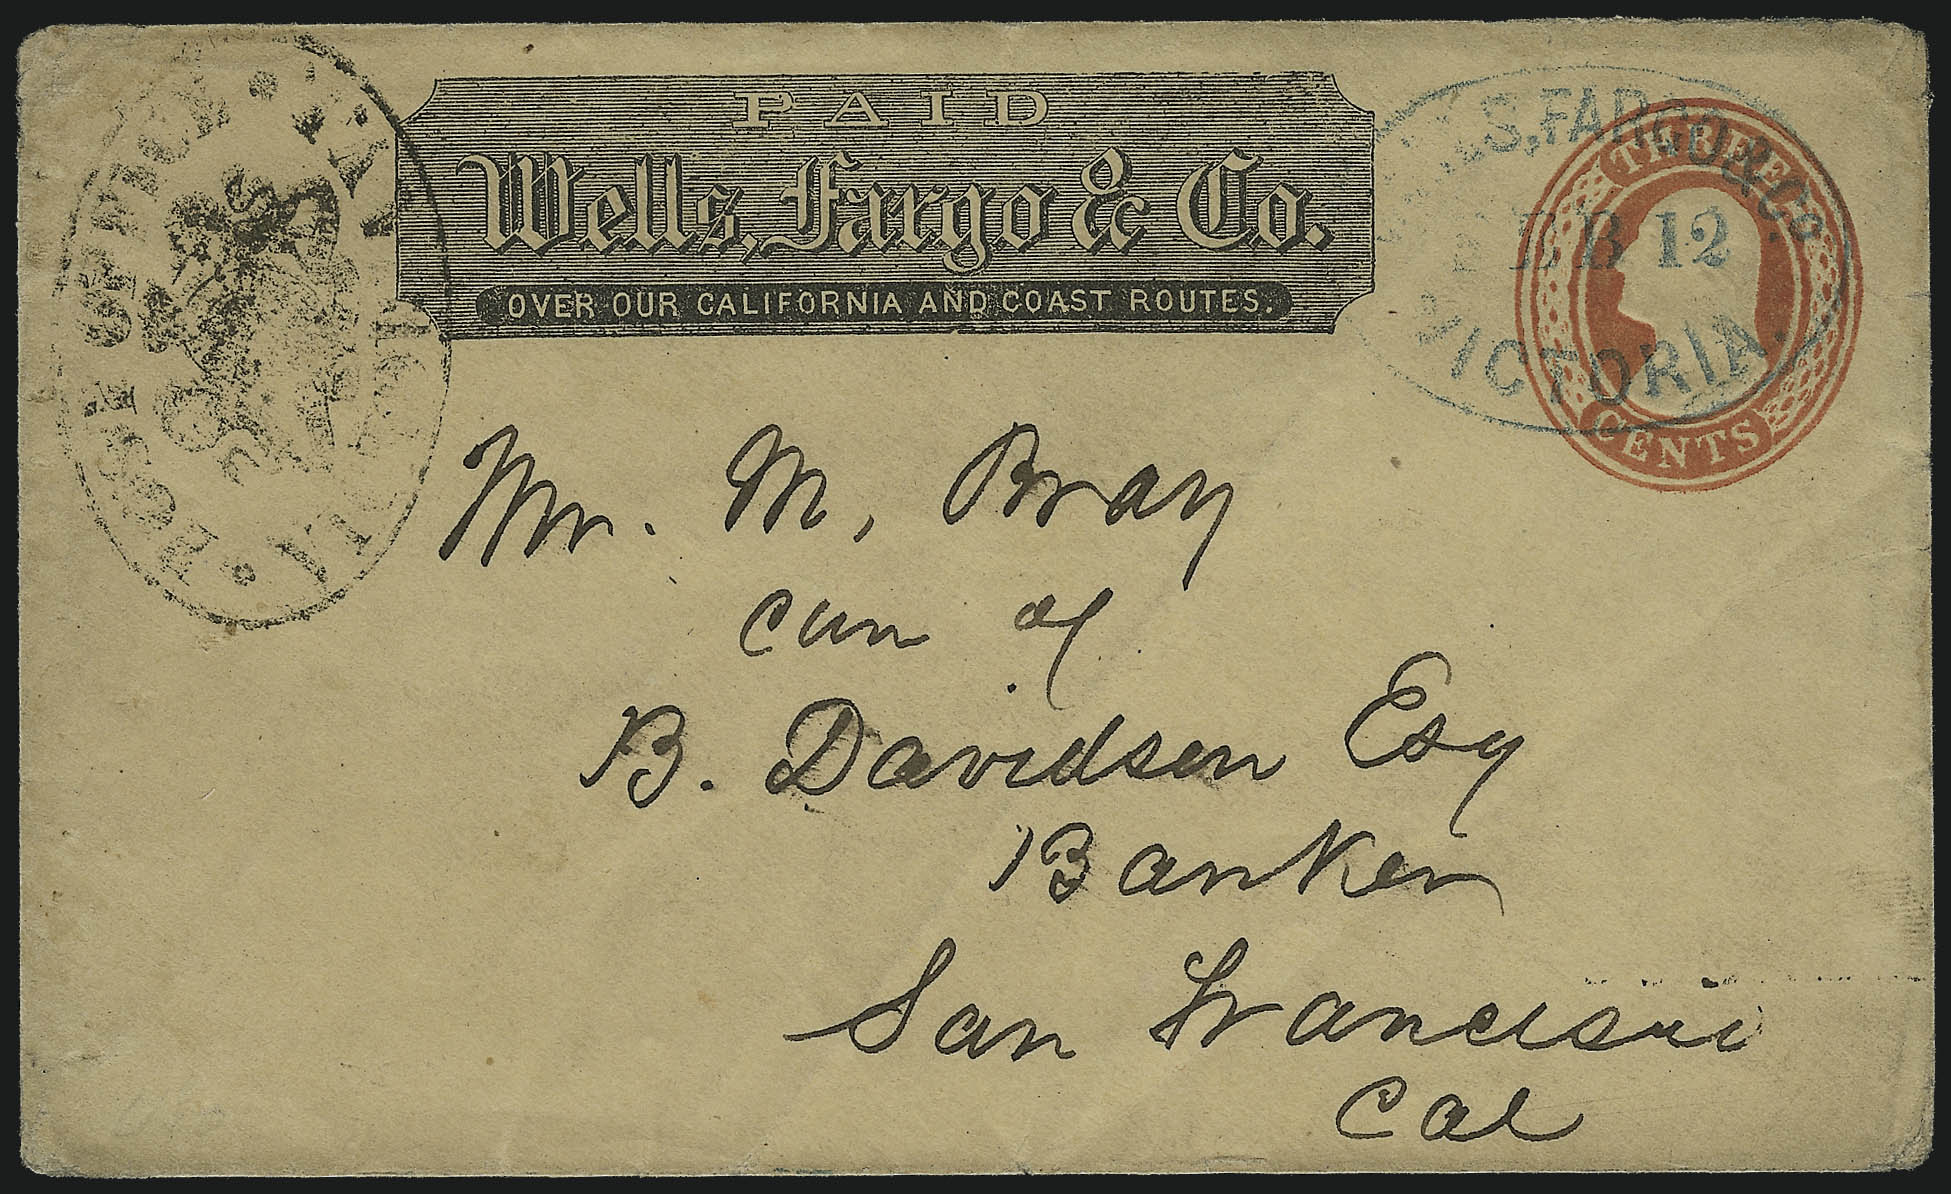 PAID
Wells, Fargo & Co.
OVER OUR CALIFORNIA AND COAST ROUTES.
POST OFFICE
PAID
VICTORIA
LS, FARGO & Co.
FEB 12
VICTORIA.
THREE
CENTS
Mr. M. Bray
care of
B. Davidson Esq
Banker
San Francisco
Cal